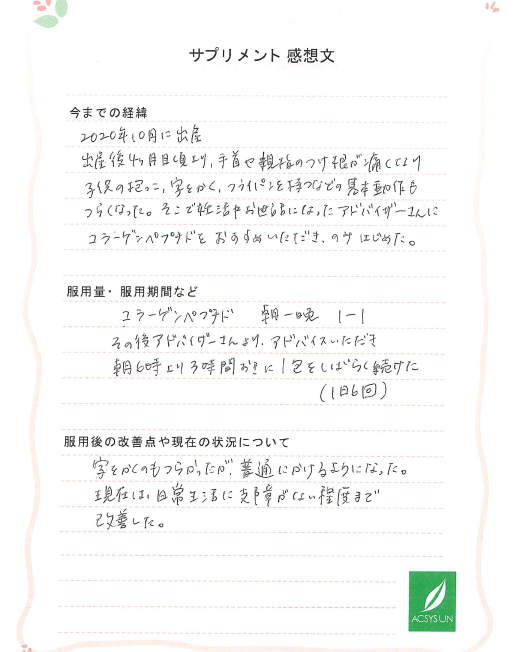 サプリメント 感想文
今までの経緯
2020年10月に出産
出産後4ヶ月目頃より、手首や親指のつけ根が痛くなり
子供の抱っこ、字をかく、フライパンを持つなどの基本動作も
つらくなった。そこで妊活中お世話になったアドバイザーさんに
コラーゲンペプチドをおすすめいただき、のみはじめた。
服用量・服用期間など
コラーゲンペプチド 朝-晩 1-1
その後アドバイザーさんより、アドバイスいただき
朝6時より3時間おきに1包をしばらく続けた
(1日6回)
服用後の改善点や現在の状況について
字をかくのもつらかったが、普通にかけるようになった。
現在は、日常生活に支障がない程度まで
改善した。
ACSYSUN